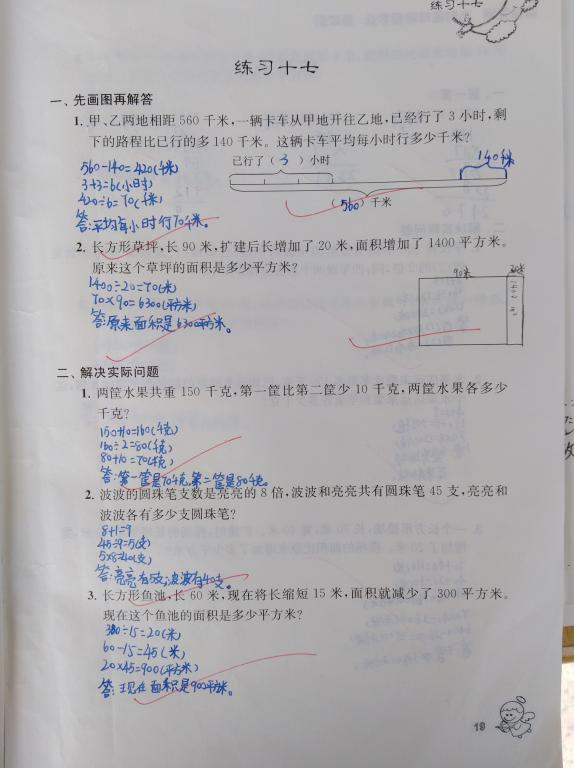 练习十七
练习十七
一、先画图再解答
1. 甲、乙两地相距 560 千米,一辆卡车从甲地开往乙地,已经行了 3 小时,剩
下的路程比已行的多 140 千米。这辆卡车平均每小时行多少千米?
已行了( 3 )小时
140千米
560-140=420(千米)
3+3=6(小时)
420÷6=70(千米)
(560)千米
答:平均每小时行70千米。
2. 长方形草坪,长 90 米,扩建后长增加了 20 米,面积增加了 1400 平方米。
原来这个草坪的面积是多少平方米?
90米
20米
1400÷20=70(米)
70×90=6300(平方米)
答:原来面积是6300平方米。
二、解决实际问题
1. 两筐水果共重 150 千克,第一筐比第二筐少 10 千克,两筐水果各多少
千克?
150+10=160(千克)
160÷2=80(千克)
80+10=70(千克)
答:第一筐是70千克,第二筐是80千克。
2. 波波的圆珠笔支数是亮亮的 8 倍,波波和亮亮共有圆珠笔 45 支,亮亮和
波波各有多少支圆珠笔?
8+1=9
45÷9=5(支)
5×8=40(支)
答:亮亮有5支,波波有40支。
3. 长方形鱼池,长 60 米,现在将长缩短 15 米,面积就减少了 300 平方米。
现在这个鱼池的面积是多少平方米?
300÷15=20(米)
60-15=45(米)
20×45=900(平方米)
答:现在面积是900平方米。
19